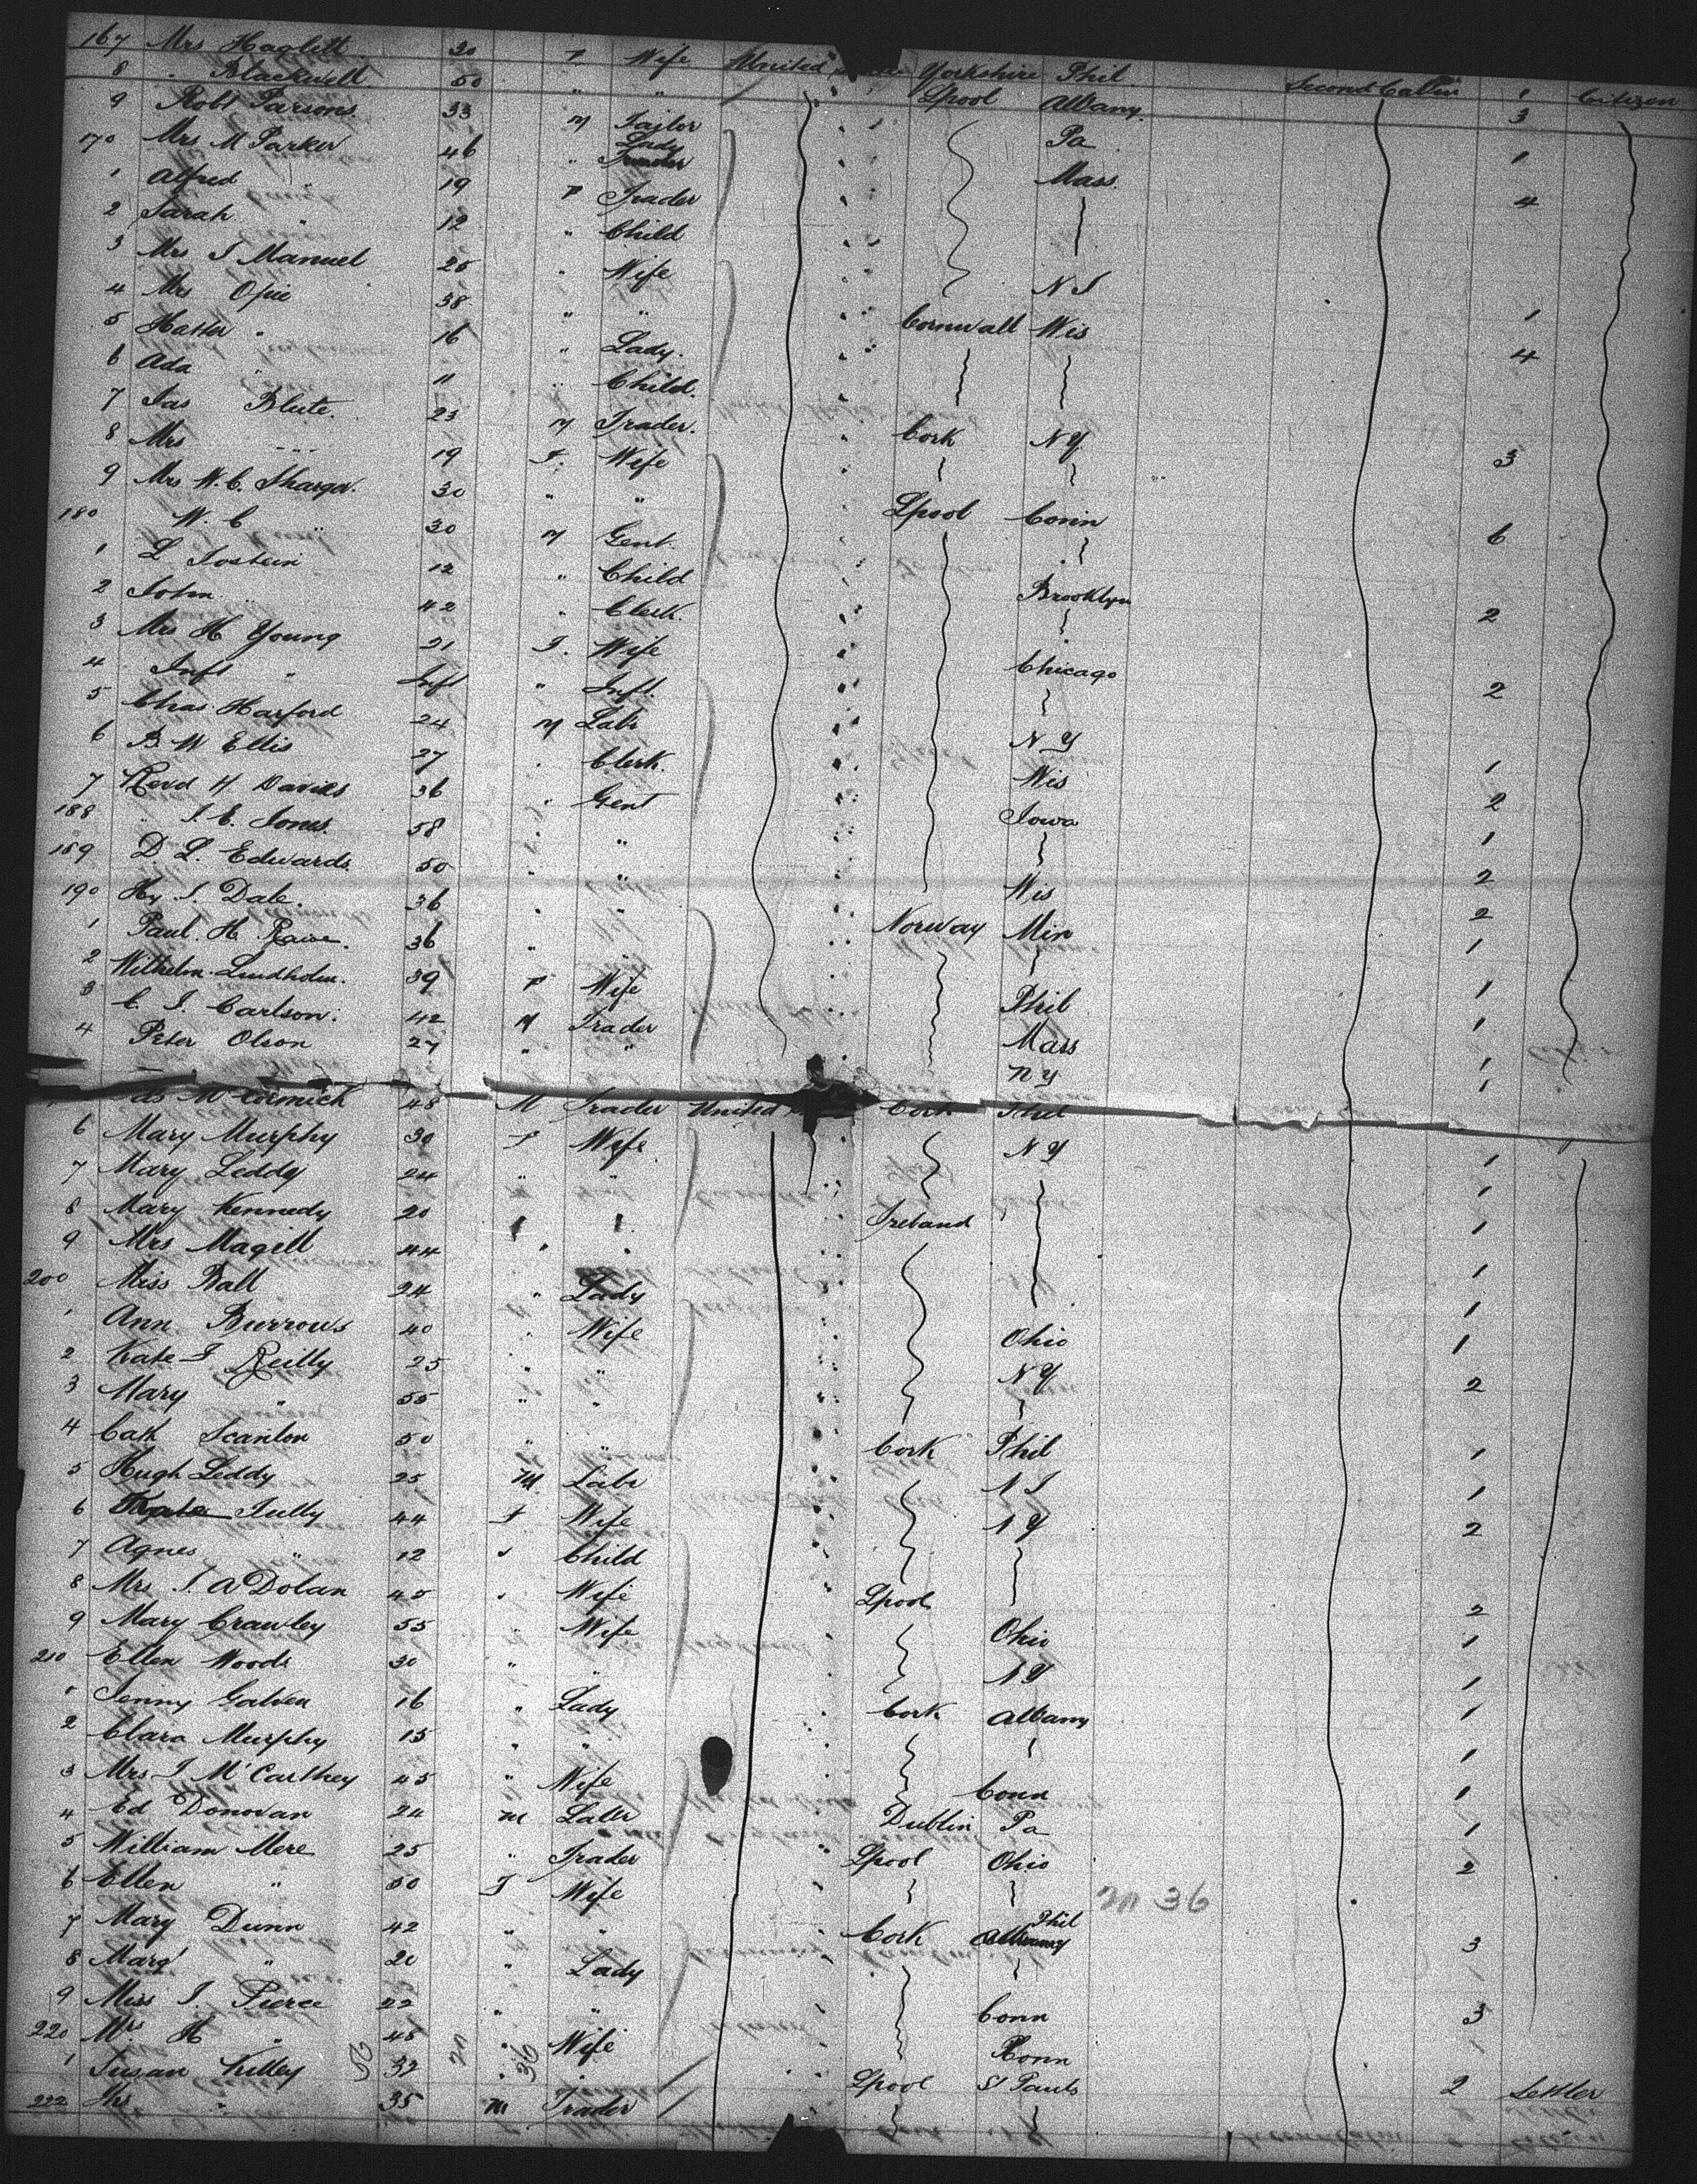 167 Mrs Haglett 30 F Wife United Yorkshire Phil Second Cabin 1 Citizen
8 " Blackwell 50 " " Lpool Albany 3
9 Robt Parsons 33 M Tailor Pa 1
170 Mrs M Parker 46 " Lady Mass 4
1 Alfred " 19 F Trader
2 Sarah " 12 " Child
3 Mrs J Manuel 25 " Wife N J 1
4 Mrs Opie 38 " " Cornwall Wis 4
5 " 16 " Lady
6 Ada " 11 " Child
7 Jas Blute 23 M Trader Cork N Y 3
8 Mrs " 19 F Wife
9 Mrs W. C. 30 " " Lpool Conn 6
180 W. C " 30 M Gent
1 L Jostein 12 " Child Brooklyn 2
2 John " 42 " Clerk
3 Mrs H Young 21 F. Wife Chicago 2
4 Inft " Inft " Inft
5 Chas Harford 24 M Labr N Y 1
6 B W Ellis 27 " Clerk Wis 2
7 Revd H Davies 36 " Gent Iowa 1
188 " J. E. Jones 58 " " 2
189 D. L. Edwards 50 " " Wis 2
190 Hy J. Dale 36 " " Norway Min 1
1 Paul. H. 36 " " 1
2 Wilhelm Lindholm 39 F Wife Phil 1
3 C. J. Carlson 42 M Trader Mass 1
4 Peter Olson 27 " " N Y 1
McCormick 48 M Trader United Cork Phil
6 Mary Murphy 30 F Wife N Y 1
7 Mary Leddy 24 " " 1
8 Mary Kennedy 20 " " Ireland 1
9 Mrs Magill 44 " " 1
200 Miss Ball 24 " Lady 1
1 Ann Burrows 40 " Wife Ohio 1
2 Kate J Reilly 25 " " N Y 2
3 Mary " 55 " "
4 Cath Scanlon 50 " " Cork Phil 1
5 Hugh Leddy 25 M Labr N J 1
6 Kate Tully 44 F Wife N Y 2
7 Agnes " 12 " Child
8 Mrs J. A Dolan 45 " Wife Lpool 2
9 Mary Crawley 55 Wife Ohio 1
210 Ellen Woods 30 " " N Y 1
1 Jenny Galven 16 " Lady Cork Albany 1
2 Clara Murphy 15 " " 1
3 Mrs J McCarthey 45 " Wife Conn 1
4 Ed Donovan 24 M Labr Dublin Pa 1
5 William Mere 25 " Trader Lpool Ohio 2
6 Ellen " 50 F Wife 20 36
7 Mary Dunn 42 " " Cork Phil 3
8 Margt " 20 " Lady
9 Miss J. Pierce 22 " " Conn 3
220 Mrs H " 48 " Wife Conn
1 Susan Killey 32 " " Lpool St Pauls 2 Settler
222 " 35 M Trader